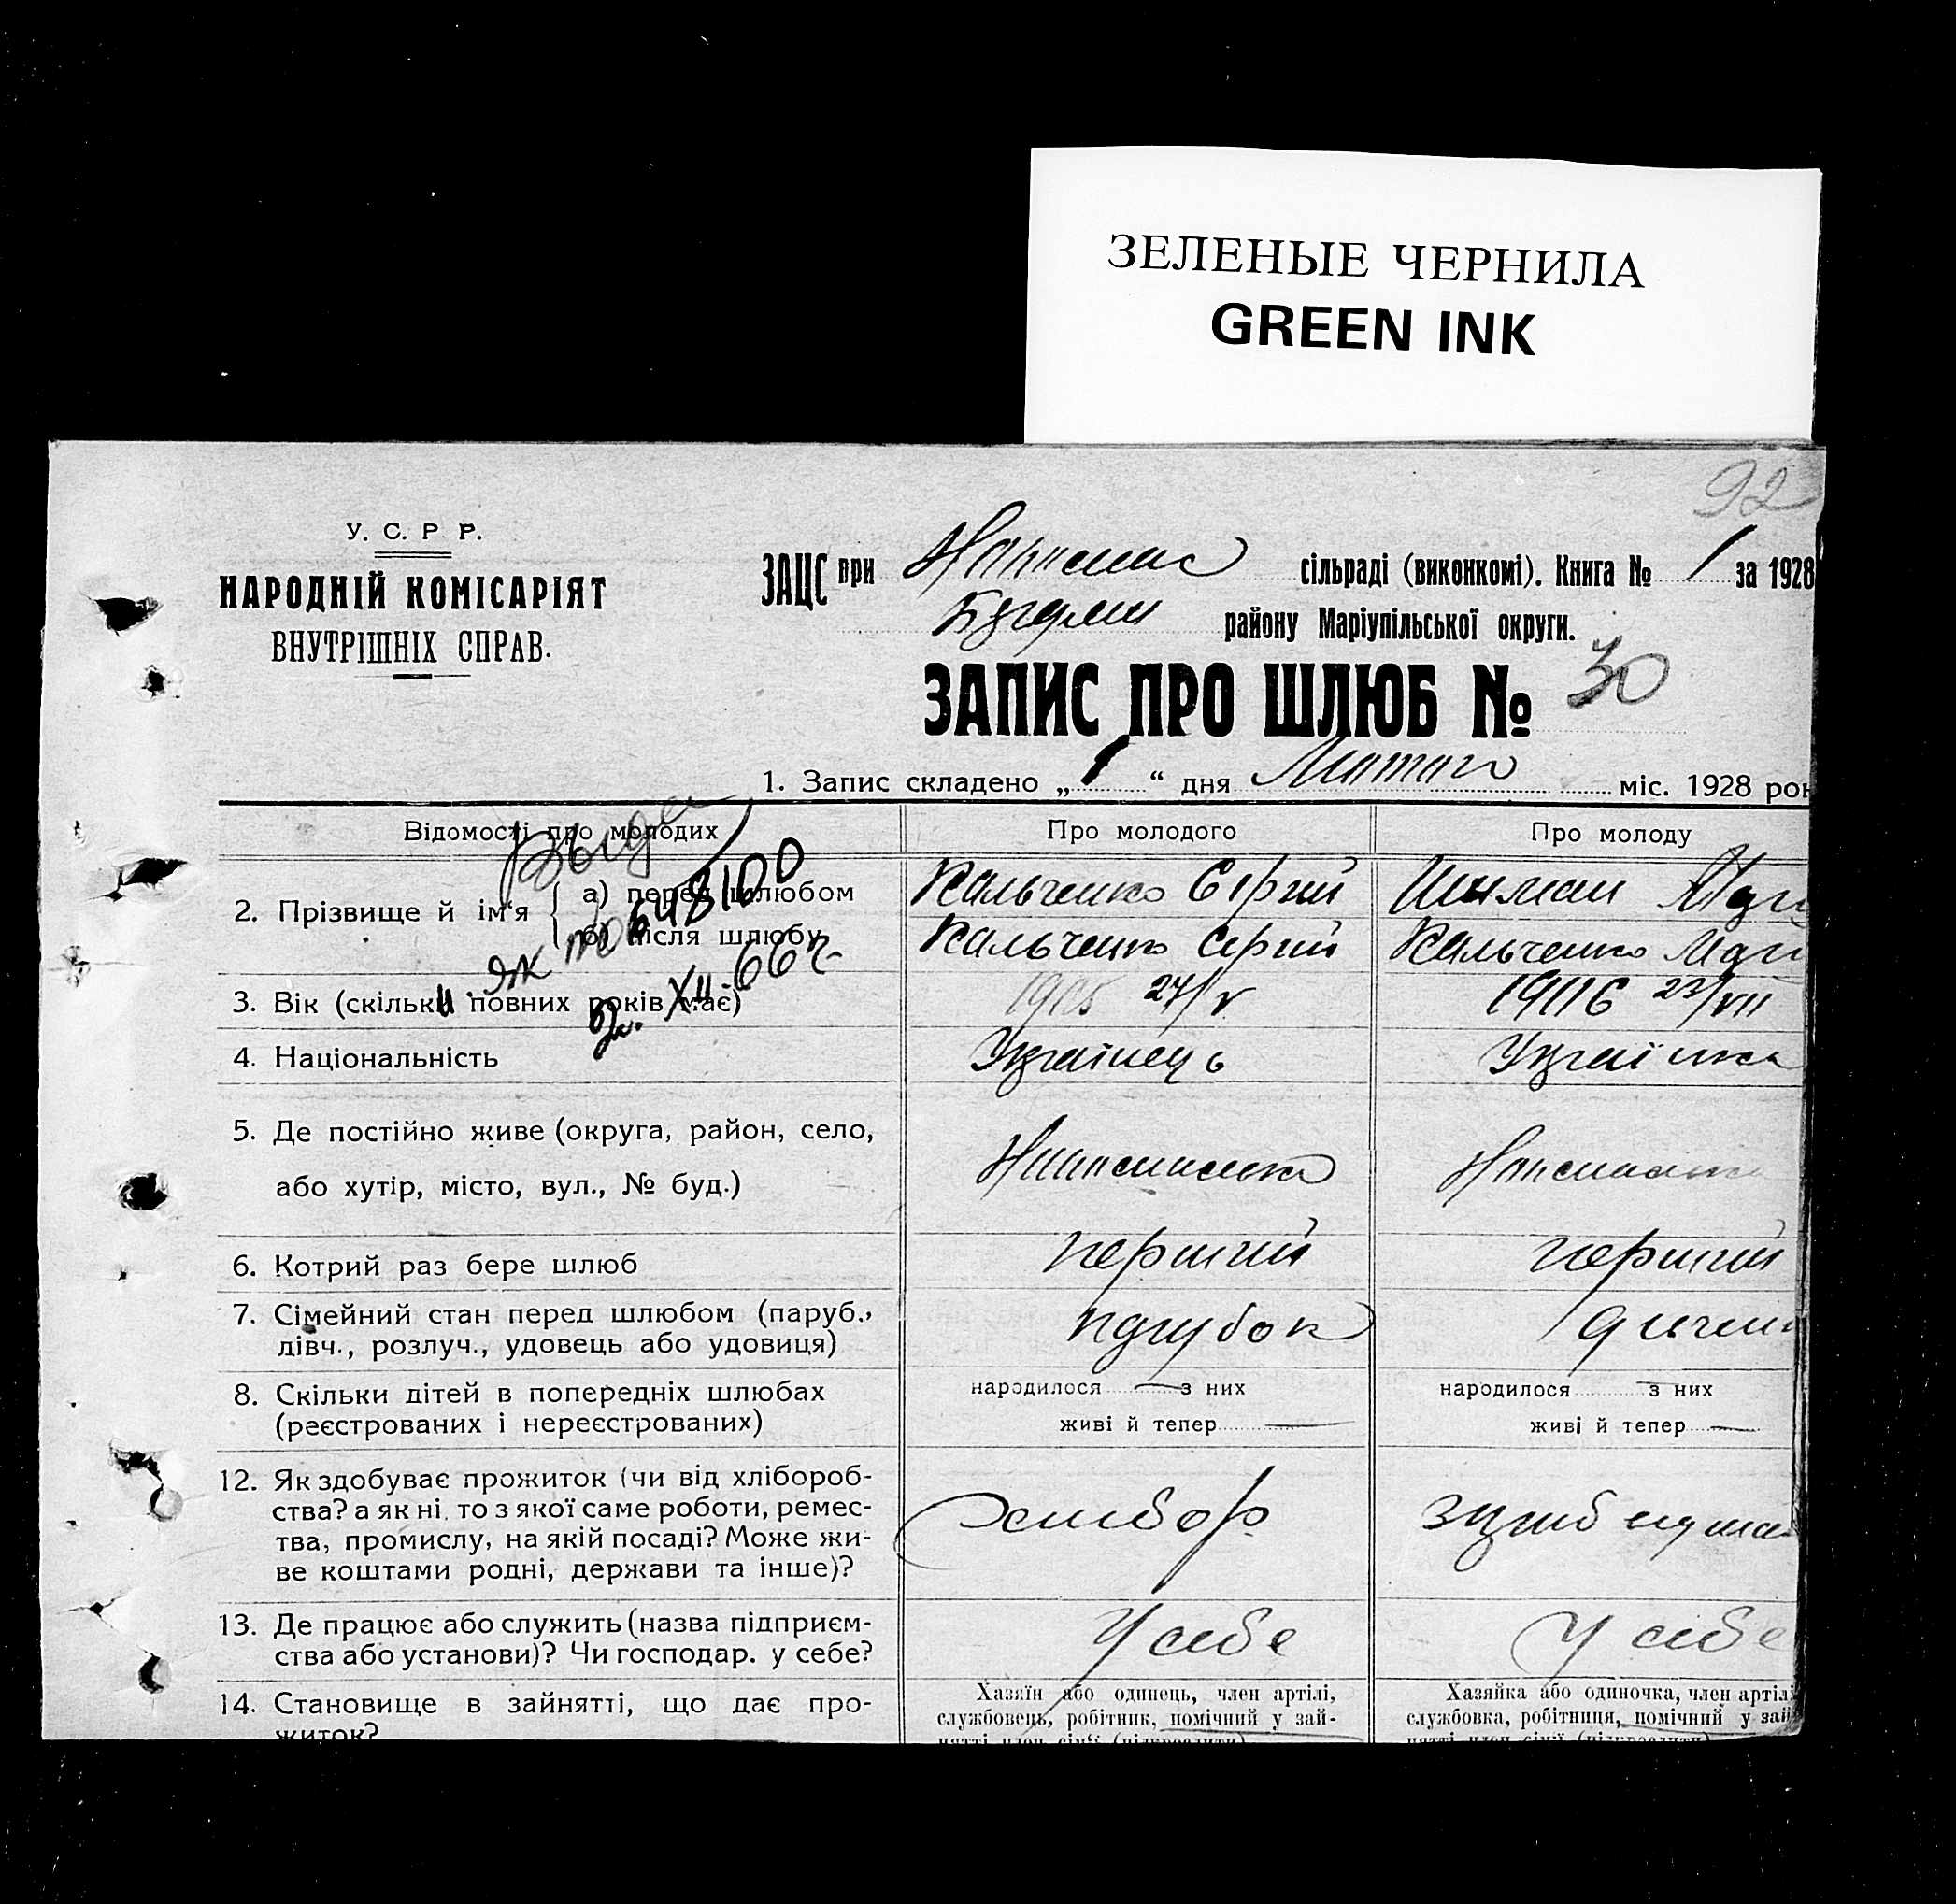 ЗЕЛЕНЫЕ ЧЕРНИЛА
GREEN INK
92
У. С. Р. Р.
НАРОДНІЙ КОМІСАРІЯТ
ВНУТРІШНІХ СПРАВ.
ЗАЦС при сільраді (виконкомі). Книга № 1 за 1928
району Маріупільської округи.
ЗАПИС ПРО ШЛЮБ № 30
1. Запис складено „1“ дня Лютого міс. 1928 рок
Відомості про молодих
Про молодого
Про молоду
2. Прізвище й ім'я
а) перед шлюбом
Кальченко Сергій
б) після шлюбу
Кальченко Сергій
Кальченко
648100
XII-66 г.
3. Вік (скільки повних років має)
27/V
23/VII
4. Національність
Українець
Українка
5. Де постійно живе (округа, район, село,
або хутір, місто, вул., № буд.)
6. Котрий раз бере шлюб
перший
перший
7. Сімейний стан перед шлюбом (паруб.,
дівч., розлуч., удовець або удовиця)
парубок
8. Скільки дітей в попередніх шлюбах
(реєстрованих і нереєстрованих)
народилося з них
живі й тепер
народилося з них
живі й тепер
12. Як здобуває прожиток (чи від хлібороб-
ства? а як ні, то з якої саме роботи, ремес-
тва, промислу, на якій посаді? Може жи-
ве коштами родні, держави та інше)?
хлібор
13. Де працює або служить (назва підприєм-
ства або установи)? Чи господар. у себе?
У себе
У себе
14. Становище в зайнятті, що дає про-
житок?
Хазяїн або одинець, член артілі,
службовець, робітник, помічний у зай-
нятті член сім'ї (підкреслити)
Хазяйка або одиночка, член артілі
службовка, робітниця, помічний у зай
нятті член сім'ї (підкреслити)